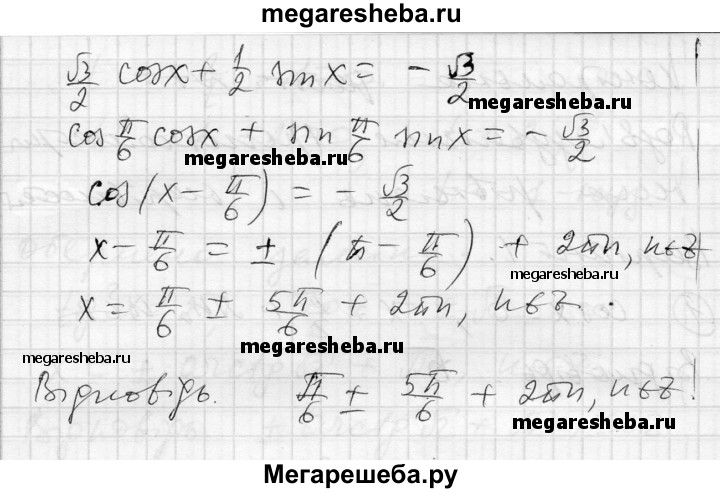 megaresheba.ru
√3/2 cosx + 1/2 sinx = - √3/2
megaresheba.ru
cos π/6 cosx + sin π/6 sinx = - √3/2
megaresheba.ru
cos(x - π/6) = - √3/2
x - π/6 = ± (π - π/6) + 2πn, n∈Z
megaresheba.ru
x = π/6 ± 5π/6 + 2πn, n∈Z.
megaresheba.ru
megaresheba.ru
Відповідь. π/6 ± 5π/6 + 2πn, n∈Z!
megaresheba.ru
Мегарешеба.ру